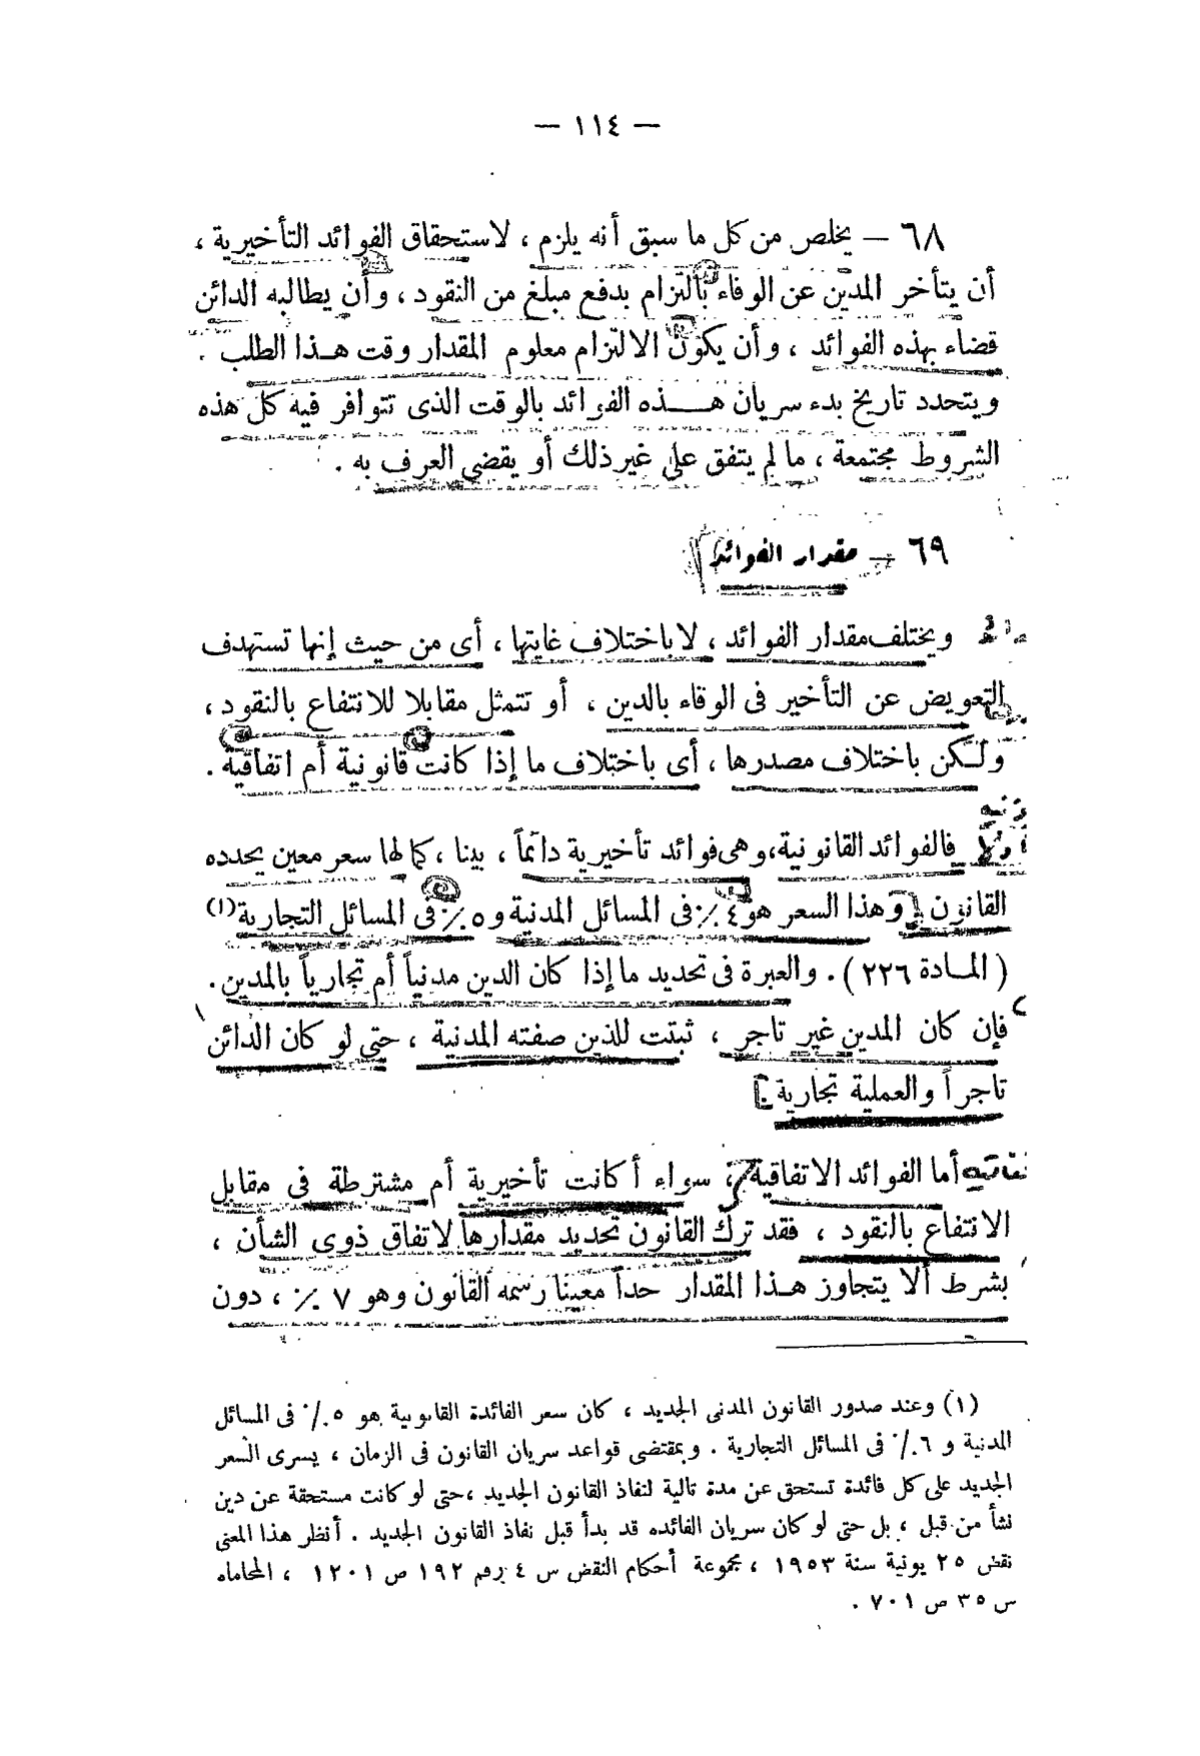 — ١١٤ —
٦٨ — يخلص من كل ما سبق أنه يلزم ، لاستحقاق الفوائد التأخيرية ،
أن يتأخر المدين عن الوفاء بالتزام بدفع مبلغ من النقود ، وأن يطالبه الدائن
قضاء بهذه الفوائد ، وأن يكون الالتزام معلوم المقدار وقت هذا الطلب .
ويتحدد تاريخ بدء سريان هذه الفوائد بالوقت الذى تتوافر فيه كل هذه
الشروط مجتمعة ، ما لم يتفق على غير ذلك أو يقضى العرف به .
٦٩ — مقدار الفوائد
ويختلف مقدار الفوائد ، لا باختلاف غايتها ، أى من حيث إنها تستهدف
التعويض عن التأخير فى الوفاء بالدين ، أو تتمثل مقابلا للانتفاع بالنقود ،
ولكن باختلاف مصدرها ، أى باختلاف ما إذا كانت قانونية أم اتفاقية .
فالفوائد القانونية ، وهى فوائد تأخيرية دائماً ، بينا ، كما لها سعر معين يحدده
القانون وهذا السعر هو ٤ ٪ فى المسائل المدنية و ٥ ٪ فى المسائل التجارية (١)
( المادة ٢٢٦ ) . والعبرة فى تحديد ما إذا كان الدين مدنياً أم تجارياً بالمدين .
فإن كان المدين غير تاجر ، ثبتت للذين صفته المدنية ، حتى لو كان الدائن
تاجراً والعملية تجارية .
أما الفوائد الاتفاقية ، سواء أكانت تأخيرية أم مشترطة فى مقابل
الانتفاع بالنقود ، فقد ترك القانون تحديد مقدارها لاتفاق ذوى الشأن ،
بشرط ألا يتجاوز هذا المقدار حداً معيناً رسمه القانون وهو ٧ ٪ ، دون
(١) وعند صدور القانون المدنى الجديد ، كان سعر الفائدة القانونية هو ٥ ٪ فى المسائل
المدنية و ٦ ٪ فى المسائل التجارية . وبمقتضى قواعد سريان القانون فى الزمان ، يسرى السعر
الجديد على كل فائدة تستحق عن مدة تالية لنفاذ القانون الجديد ، حتى لو كانت مستحقة عن دين
نشأ من قبل ، بل حتى لو كان سريان الفائده قد بدأ قبل نفاذ القانون الجديد . أنظر هذا المعنى
نقض ٢٥ يونية سنة ١٩٥٣ ، مجموعة أحكام النقض س ٤ رقم ١٩٢ ص ١٢٠١ ، المحاماه
س ٣٥ ص ٧٠١ .